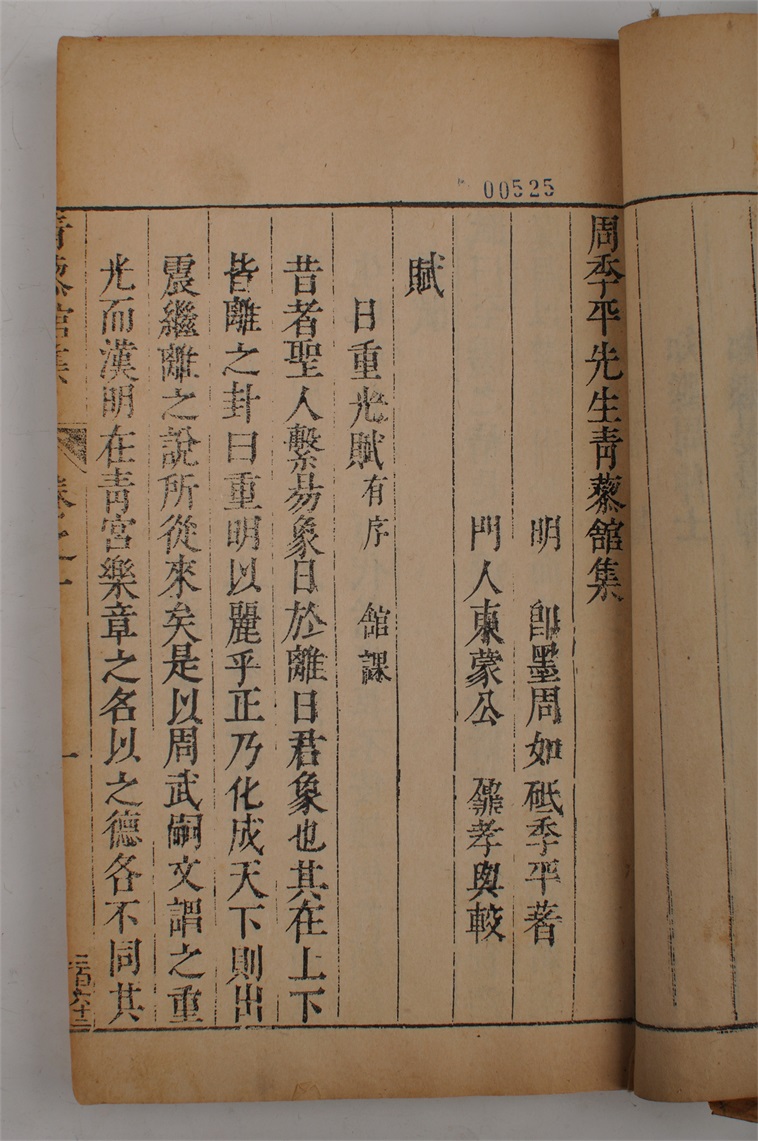 00525
周季平先生青藜舘集
明 卽墨周如砥季平著
門人東蒙公鼐孝與較
賦
日重光賦有序 舘課
昔者聖人繫易象日於離日君象也其在上下
皆離之卦曰重明以麗乎正乃化成天下則出
震繼離之說所從來矣是以周武嗣文謂之重
光而漢明在青宮樂章之名以之德各不同其
青藜舘集 卷之一 一